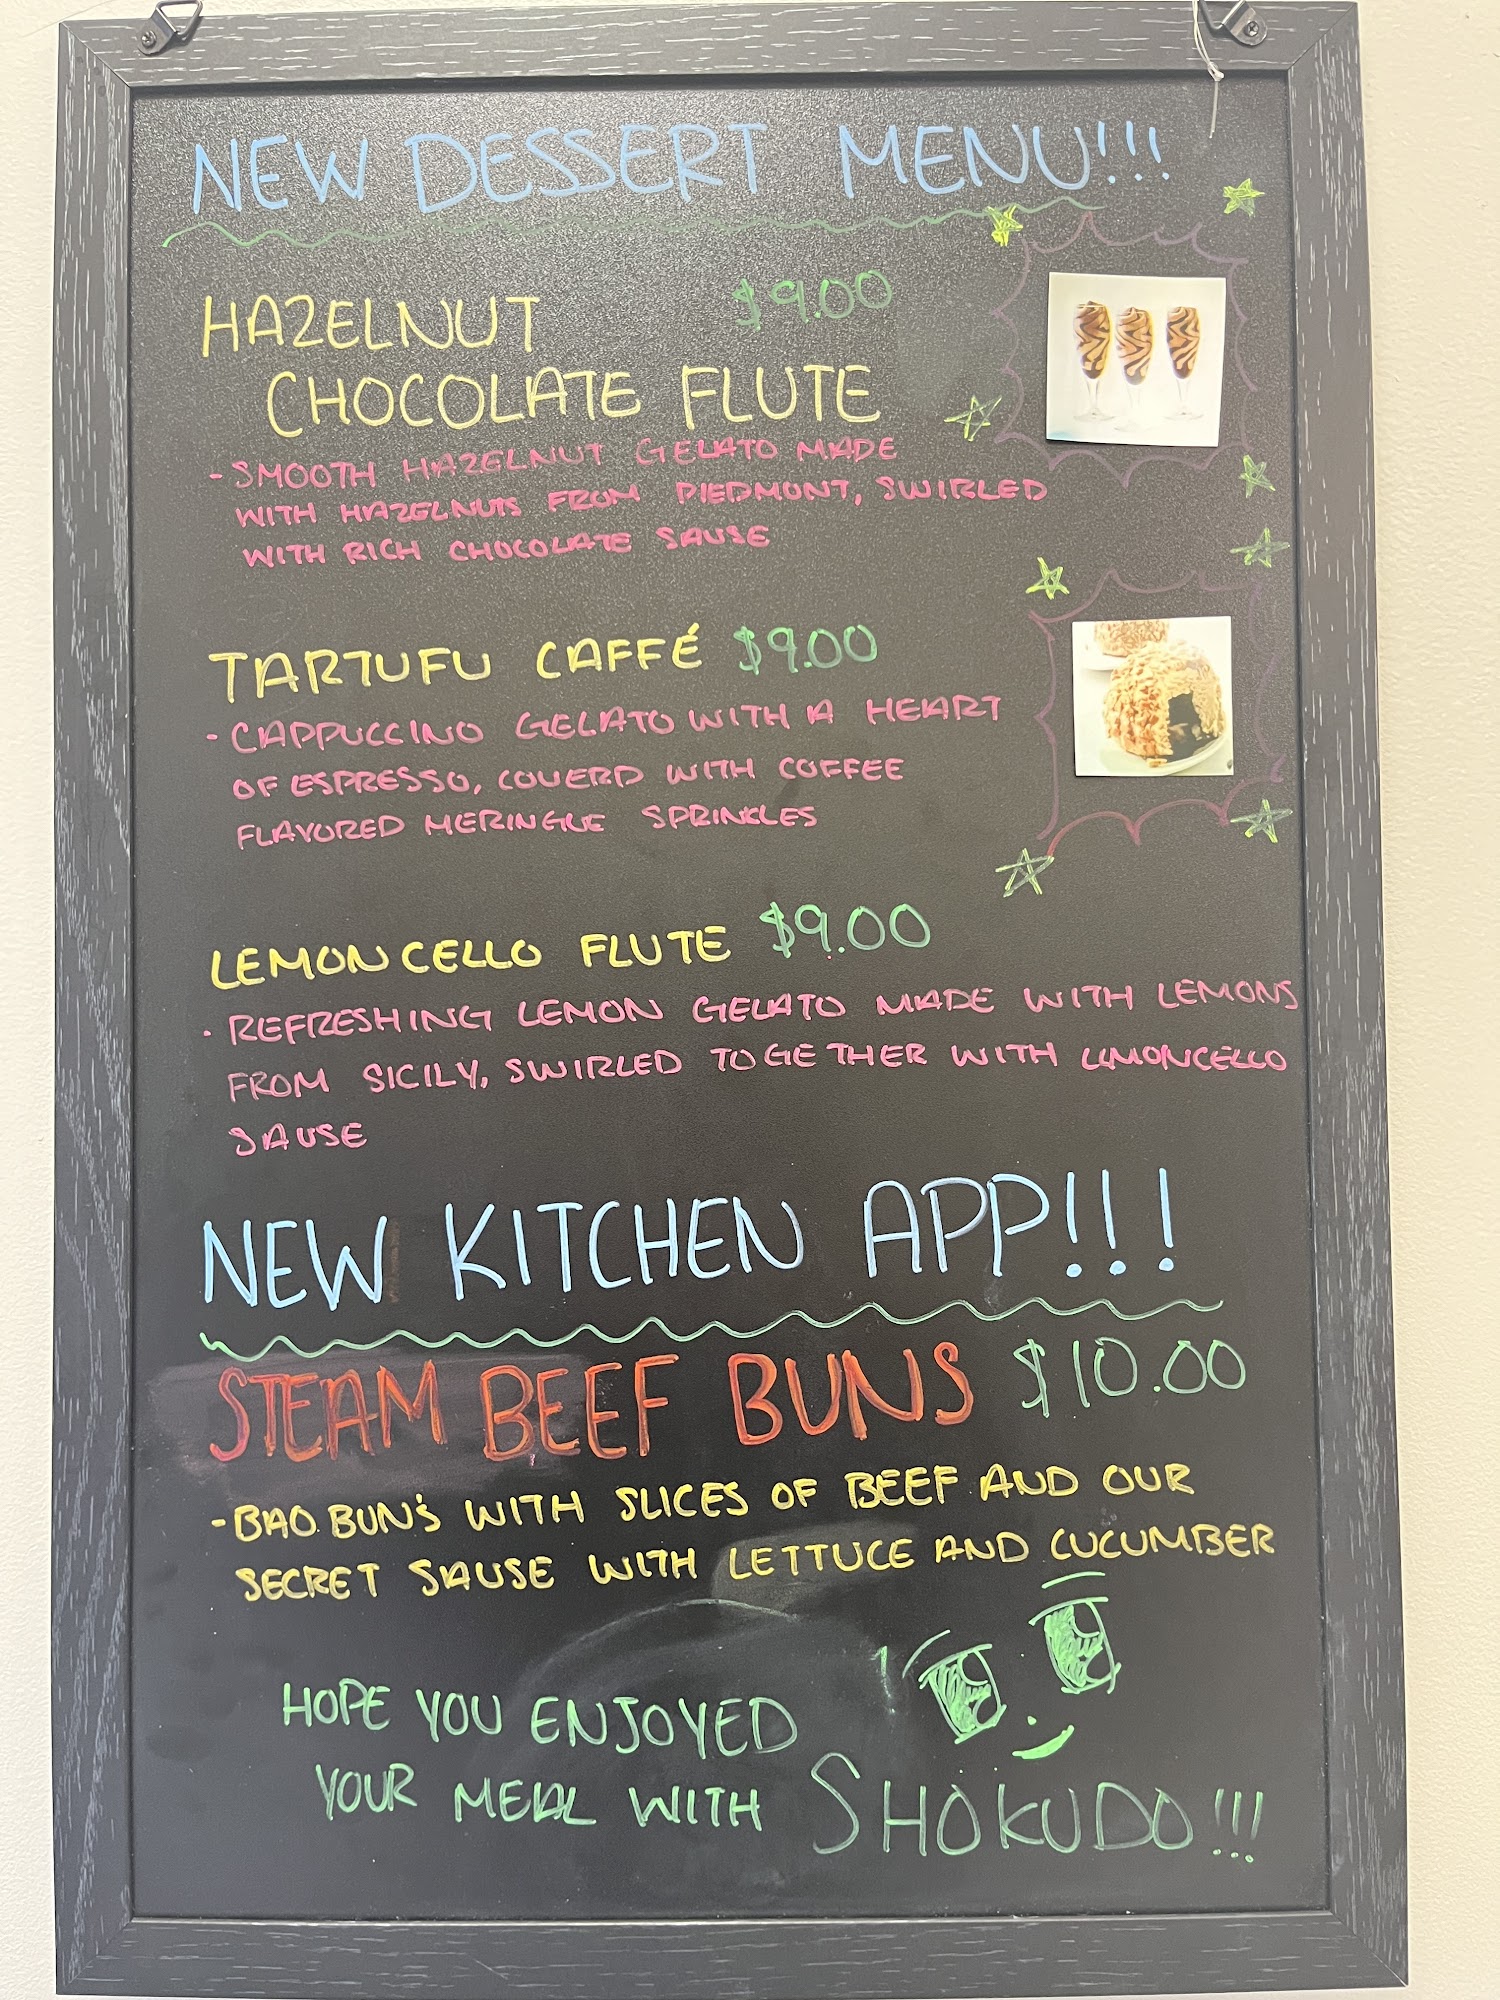 NEW DESSERT MENU!!!
HAZELNUT $9.00
CHOCOLATE FLUTE
- SMOOTH HAZELNUT GELATO MADE
WITH HAZELNUTS FROM PIEDMONT, SWIRLED
WITH RICH CHOCOLATE SAUSE
TARTUFU CAFFÉ $9.00
- CAPPUCCINO GELATO WITH A HEART
OF ESPRESSO, COVERD WITH COFFEE
FLAVORED MERINGUE SPRINKLES
LEMONCELLO FLUTE $9.00
- REFRESHING LEMON GELATO MADE WITH LEMONS
FROM SICILY, SWIRLED TOGETHER WITH LIMONCELLO
SAUSE
NEW KITCHEN APP!!!
STEAM BEEF BUNS $10.00
- BAO BUN'S WITH SLICES OF BEEF AND OUR
SECRET SAUSE WITH LETTUCE AND CUCUMBER
HOPE YOU ENJOYED
YOUR MEAL WITH SHOKUDO!!!